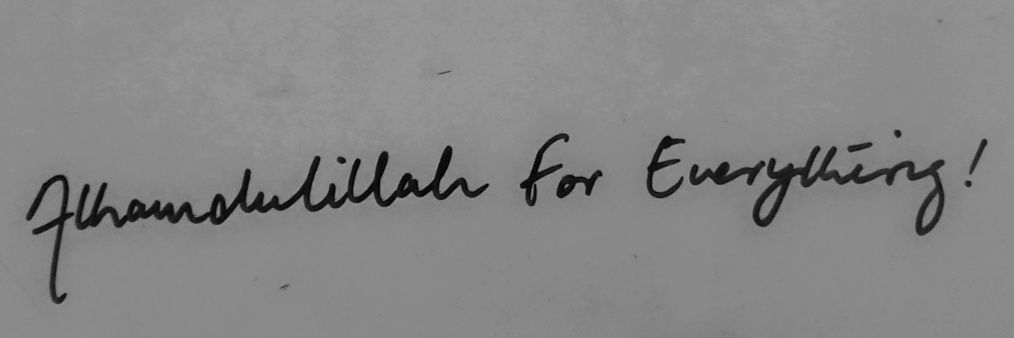 Alhamdulillah for Everything!